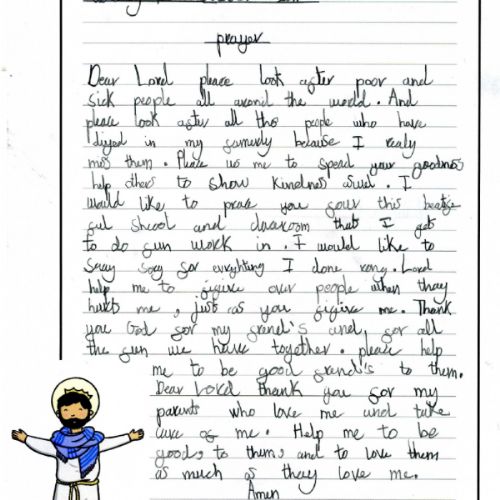 prayer
Dear Lord pleace look after poor and
sick people all around the world. And
pleace look after all the people who have
in my because I realy
miss them. Please us me to spead your goodness
help others to show kindness I
would like to praise you
ful shcool and classroom that I get
to do fun work in. I would like to
Say sory for I done rong. Lord
help me to figive over people when thay
hurts me, just as you figive me. Thank
you God for my frend's and, for all
the fun we have together. please help
me to be good frend's to them.
Dear Lord thank you for my
parents who love me and take
care of me. Help me to be
good, to them, and to love them
as much as thay love me.
Amen